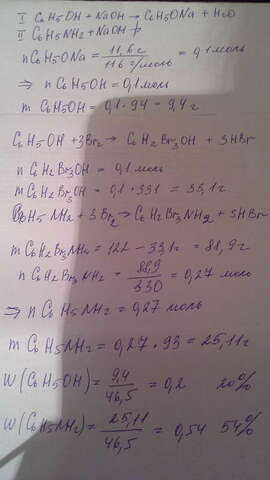 I C6H5OH + NaOH → C6H5ONa + H2O
II C6H5NH2 + NaOH ↛
nC6H5ONa = 11,6г / 116 г/моль = 0,1 моль
⇒ n C6H5OH = 0,1 моль
m C6H5OH = 0,1 · 94 = 9,4 г
C6H5OH + 3Br2 → C6H2Br3OH + 3HBr
n C6H2Br3OH = 0,1 моль
mC6H2Br3OH = 0,1 · 331 = 33,1 г
C6H5NH2 + 3Br2 → C6H2Br3NH2 + 3HBr
m C6H2Br3NH2 = 122 - 33,1г = 88,9 г
n C6H2Br3NH2 = 88,9 / 330 = 0,27 моль
⇒ n C6H5NH2 = 0,27 моль
m C6H5NH2 = 0,27 · 93 = 25,11 г
W (C6H5OH) = 9,4 / 46,5 = 0,2 20%
W (C6H5NH2) = 25,11 / 46,5 = 0,54 54%